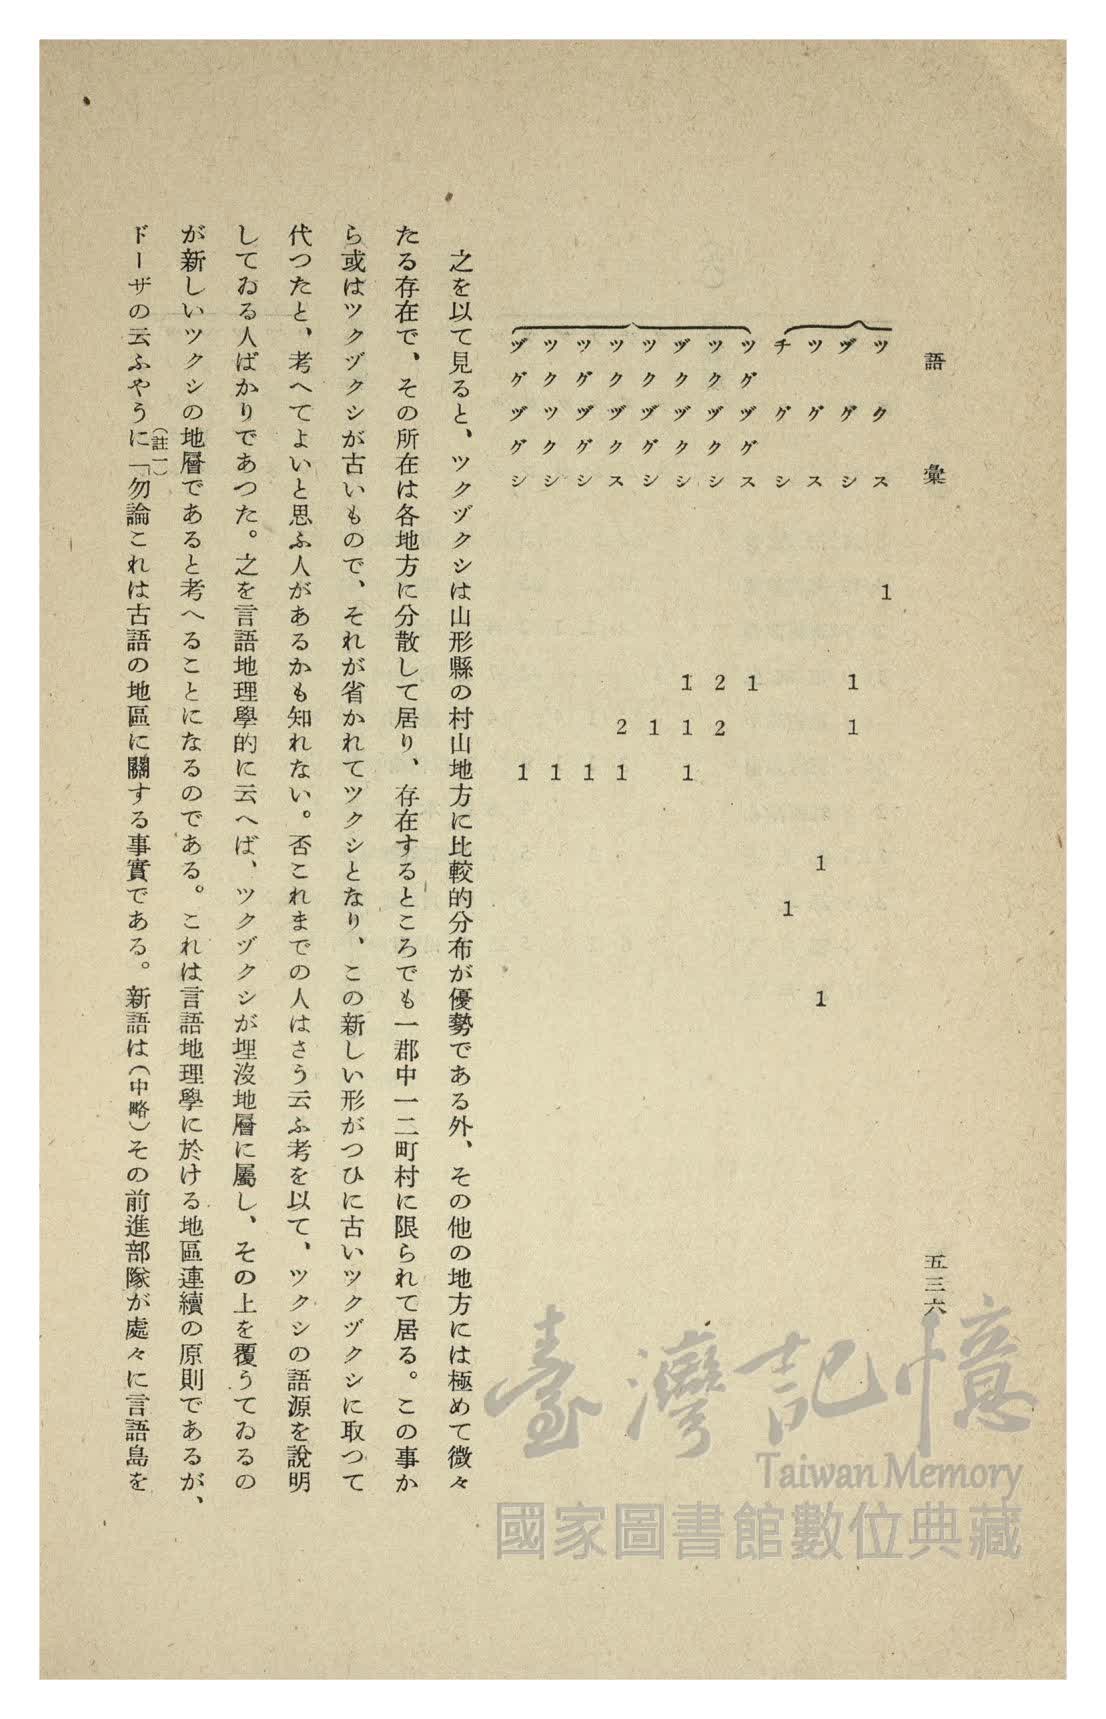 語彙
五三六
ツクス 1
ヅグシ 1 1
ツグス 1 1
チグシ 1
ツグヅグス 1
ツクヅクシ 2 2
ヅクヅクシ 1 1 1
ツクヅグシ 1
ツクヅクス 2 1
ツグヅグシ 1
ツクツクシ 1
ヅグヅグシ 1
之を以て見ると、ツクヅクシは山形縣の村山地方に比較的分布が優勢である外、その他の地方には極めて微々
たる存在で、その所在は各地方に分散して居り、存在するところでも一郡中一二町村に限られて居る。この事か
ら或はツクヅクシが古いもので、それが省かれてツクシとなり、この新しい形がつひに古いツクヅクシに取つて
代つたと、考へてよいと思ふ人があるかも知れない。否これまでの人はさう云ふ考を以て、ツクシの語源を說明
してゐる人ばかりであつた。之を言語地理學的に云へば、ツクヅクシが埋沒地層に屬し、その上を覆うてゐるの
が新しいツクシの地層であると考へることになるのである。これは言語地理學に於ける地區連續の原則であるが、
ドーザの云ふやうに(註一)「勿論これは古語の地區に關する事實である。新語は(中略)その前進部隊が處々に言語島を
臺灣記憶
Taiwan Memory
國家圖書館數位典藏